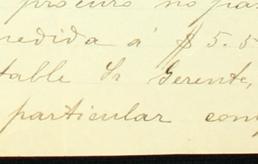 procuro no pa
nedida á $ 5.5
table Sr Gerente,
particular com